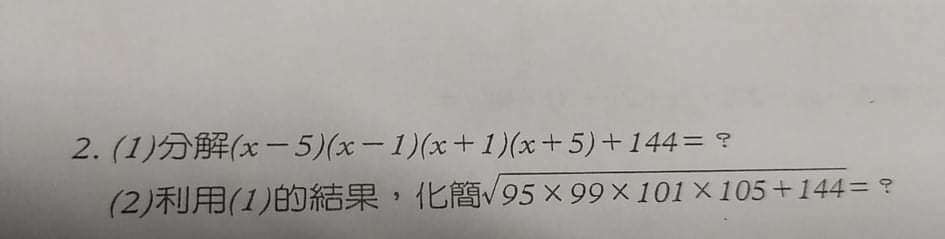 2. (1)分解(x－5)(x－1)(x＋1)(x＋5)＋144＝？
(2)利用(1)的結果，化簡√95×99×101×105＋144＝？